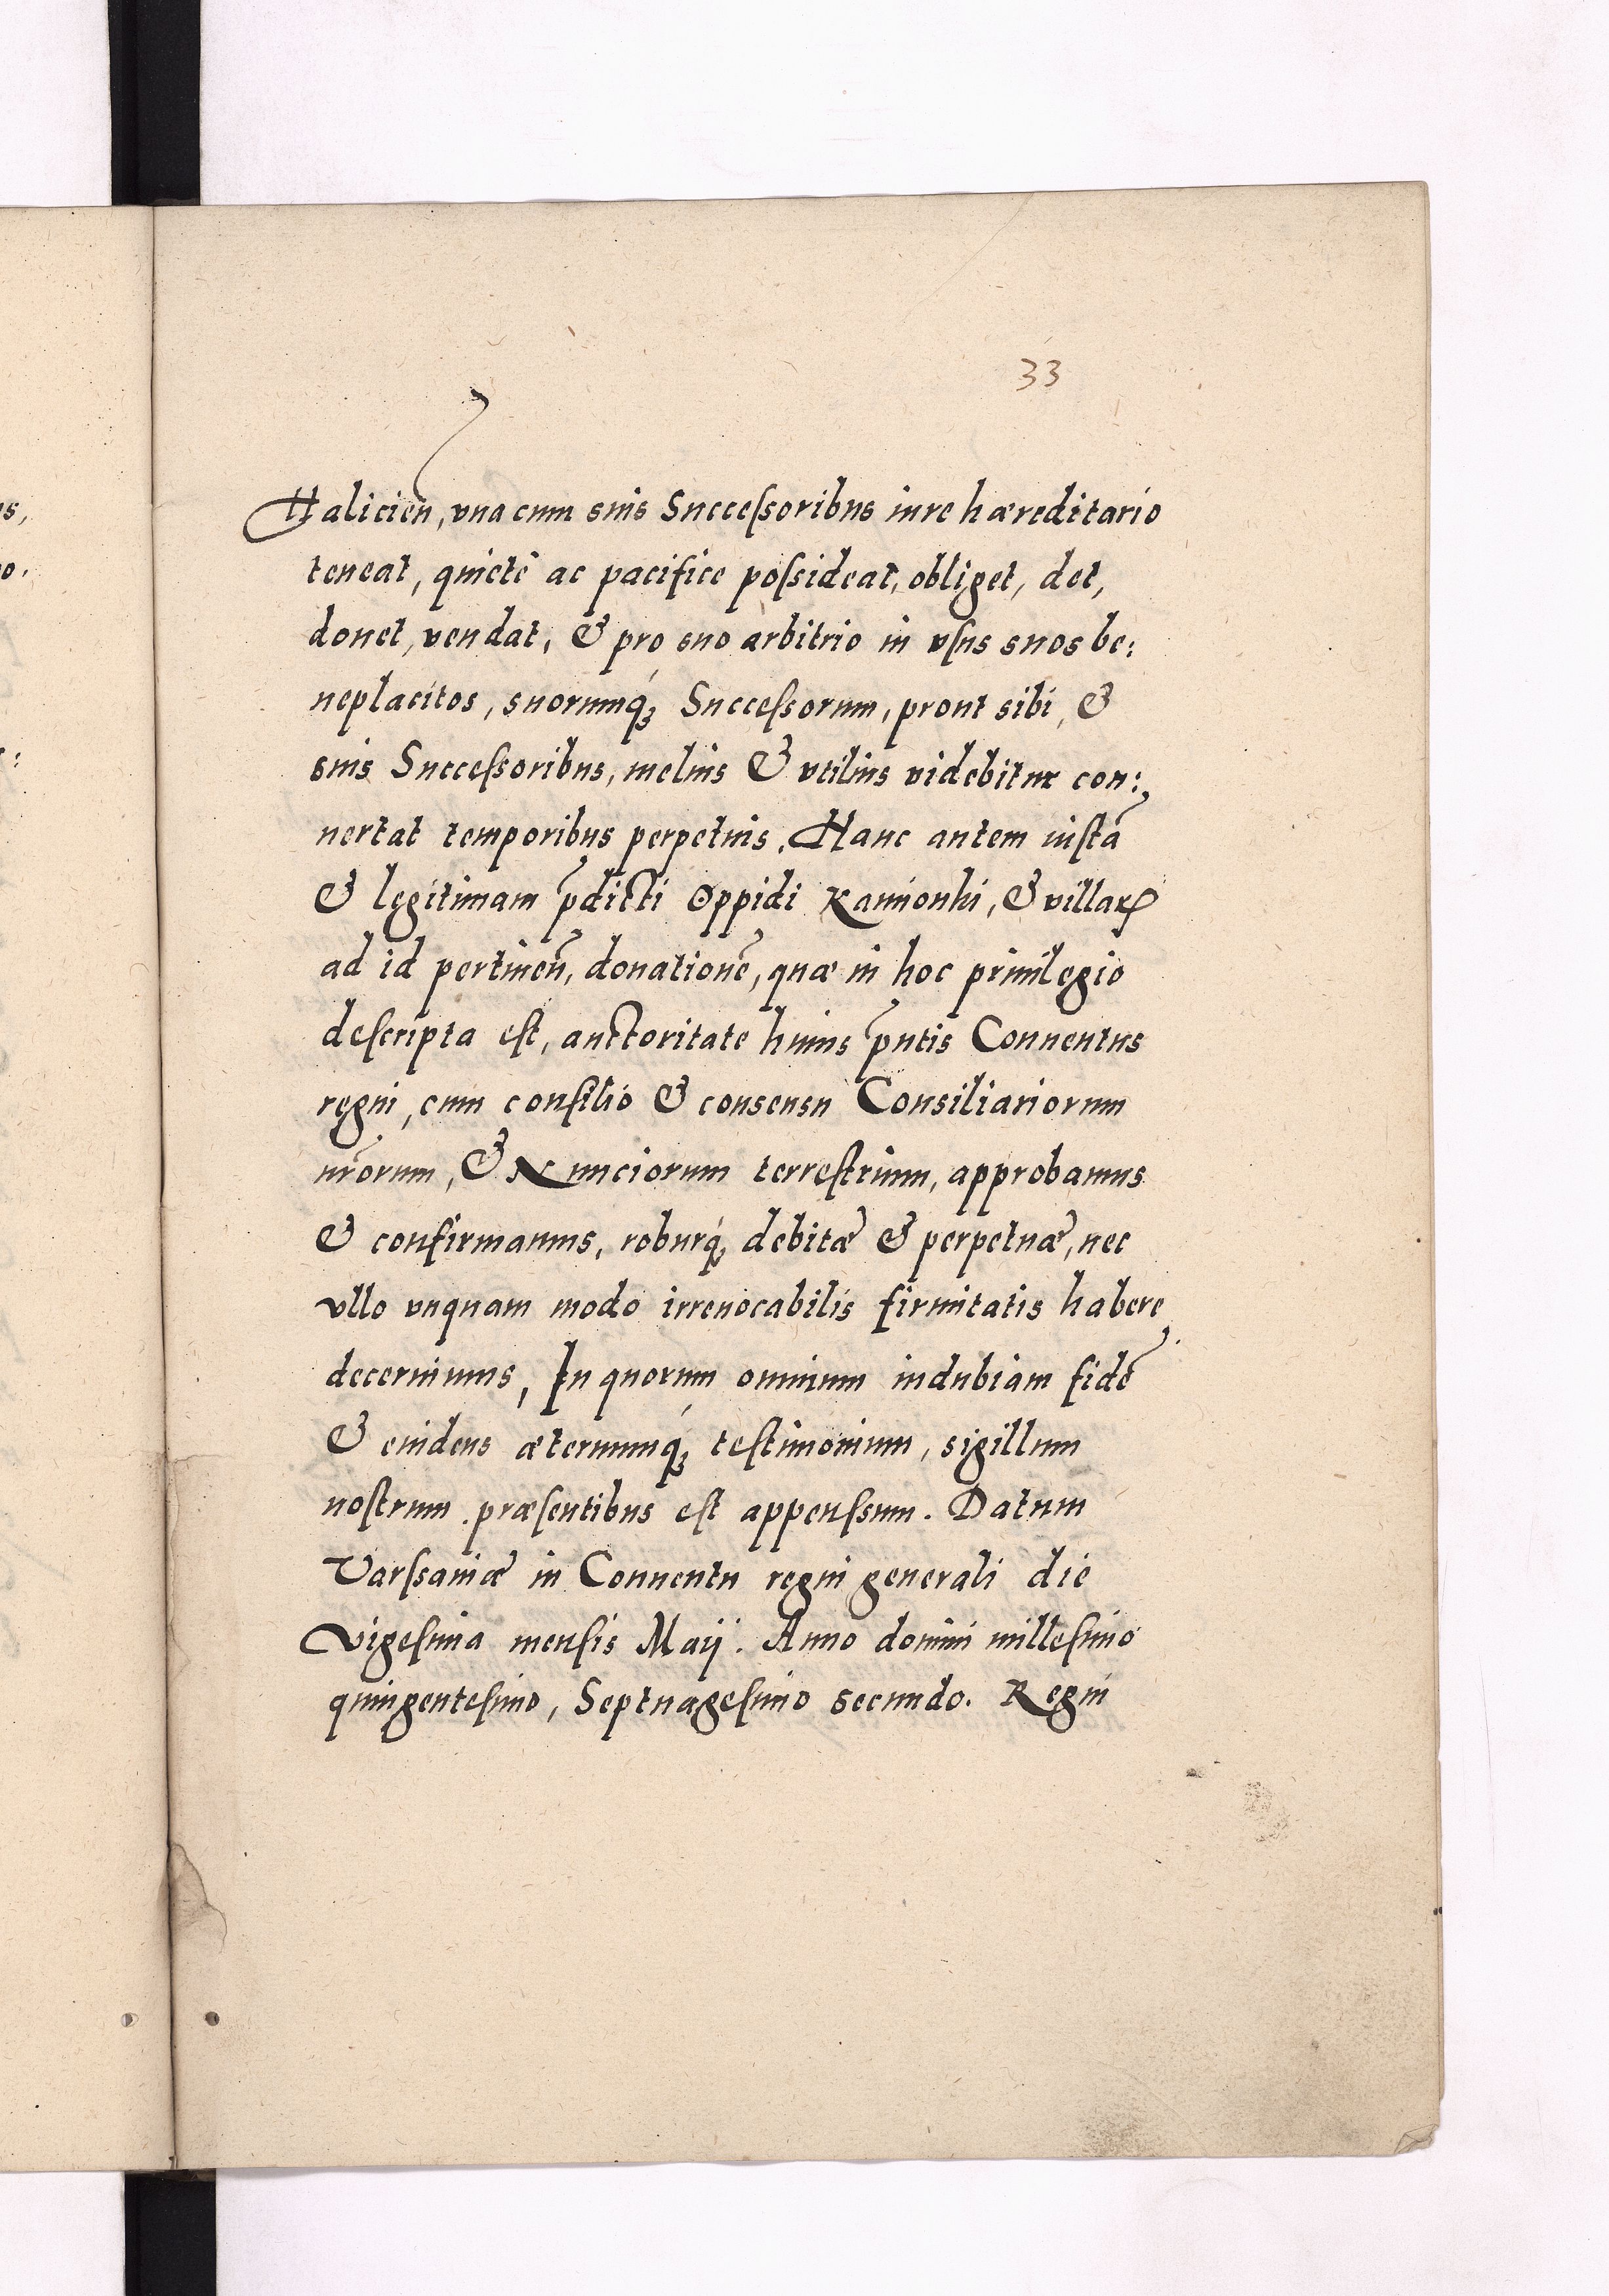 33
Halicien̄, vna cum suis Successoribus iure hæreditario
teneat, quietè ac pacifice possideat, obliget, det,
donet, vendat, & pro suo arbitrio in vsus suos be:
neplacitos, suorumq́ꝫ Successorum, prout sibi, &
suis Successoribus, melius & vtilius videbitur con:
uertat temporibus perpetuis. Hanc autem iustā
& legitimam p̄dicti Oppidi Kamionki, & villaꝝ
ad id pertinen̄, donationē, quæ in hoc priuilegio
descripta est, auctoritate huius p̄ntis Conuentus
regni, cum consilio & consensu Consiliariorum
nr̄orum, & Nunciorum terrestrium, approbamus
& confirmamus, roburq́ꝫ debitæ & perpetuæ, nec
vllo vnquam modo irreuocabilis firmitatis habere
decernimus, In quorum omnium indubiam fidē
& euidens æternumq́ꝫ testimonium, sigillum
nostrum præsentibus est appenssum. Datum
Varssauiæ in Conuentu regni generali die
Vigesima mensis Maij. Anno domini millesimo
quingentesimo, Septuagesimo secundo. Regni
s,
o.
: